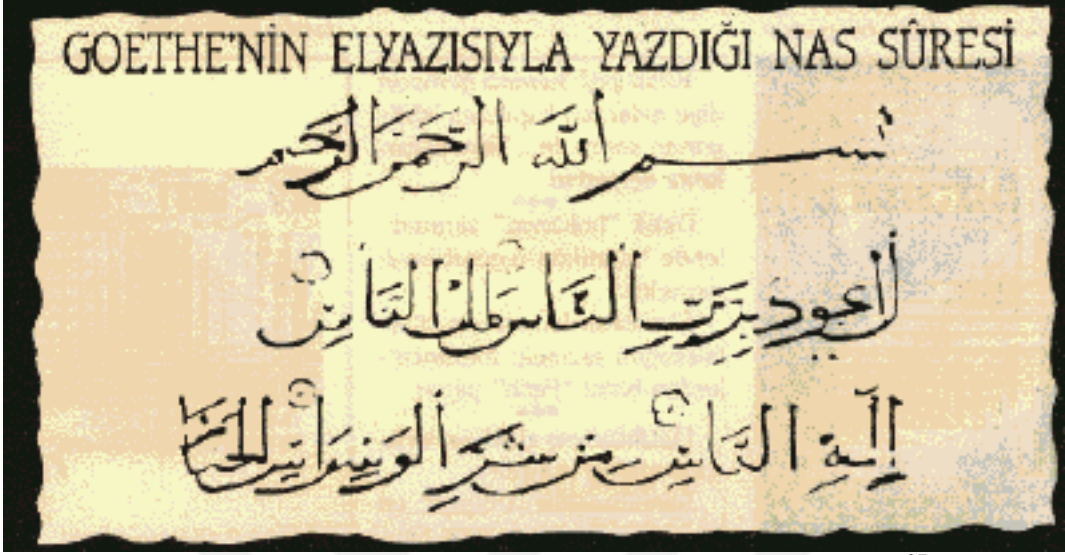 GOETHE'NİN ELYAZISIYLA YAZDIĞI NAS SÛRESİ
بسم الله الرحمن الرحيم
أعود بِرَبِّ النَّاسِ مَلِكِ النَّاسِ
إِلَّهِ النَّاسِ مِن شَرِّ الوَسْوَاسِ الخَنَّاس